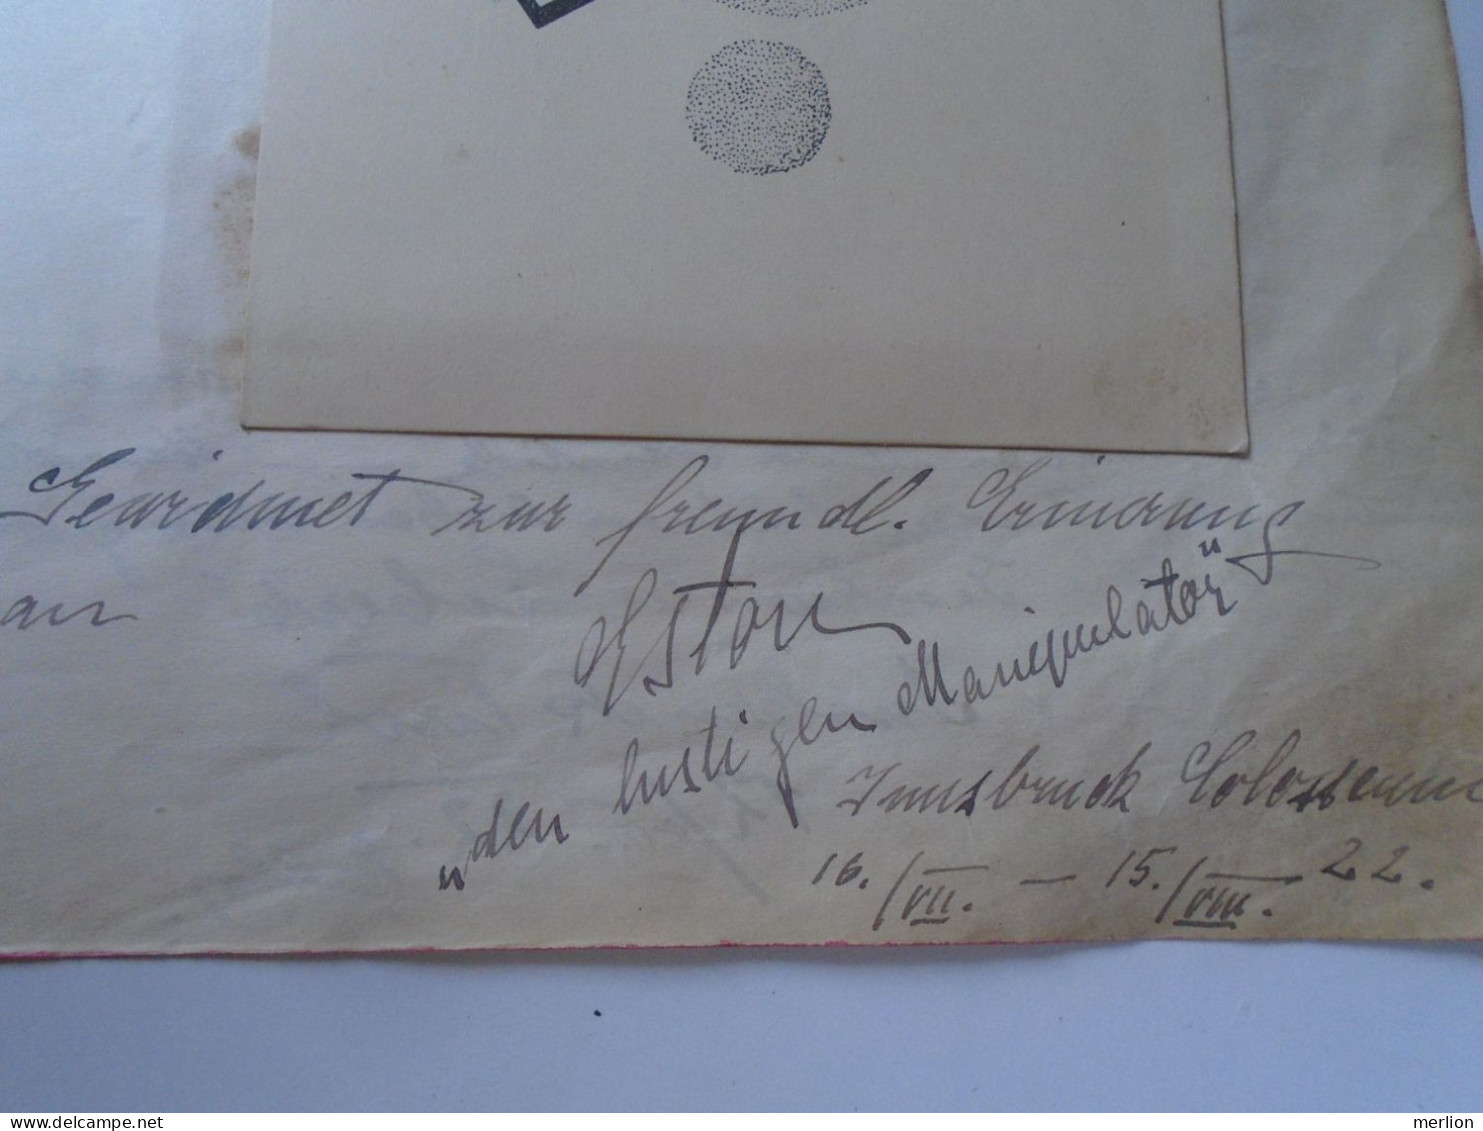 Gewidmet zur freundl. Erinerung
an
Eston
„den lustigen Manipulatör"
Innsbruck Colosseum
16./VII. — 15./VIII. 22.
merlion